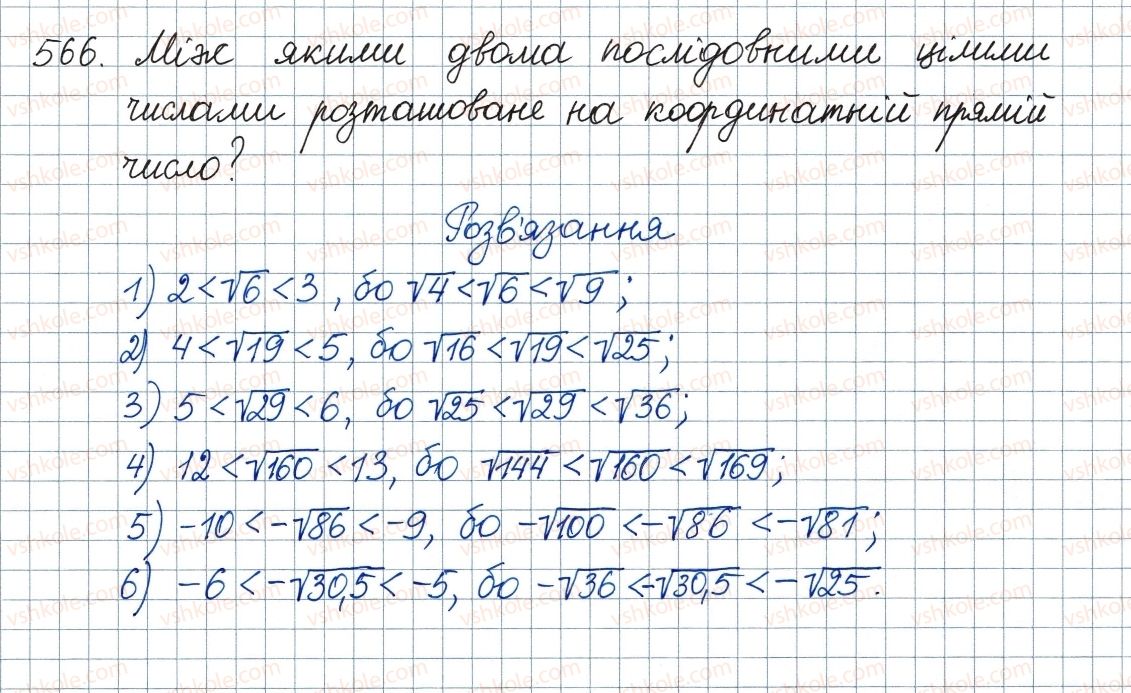 566. Між якими двома послідовними цілими
числами розташоване на координатній прямій
число?
Розв'язання
1) 2 < √6 < 3, бо √4 < √6 < √9;
2) 4 < √19 < 5, бо √16 < √19 < √25;
3) 5 < √29 < 6, бо √25 < √29 < √36;
4) 12 < √160 < 13, бо √144 < √160 < √169;
5) -10 < -√86 < -9, бо -√100 < -√86 < -√81;
6) -6 < -√30,5 < -5, бо -√36 < -√30,5 < -√25.